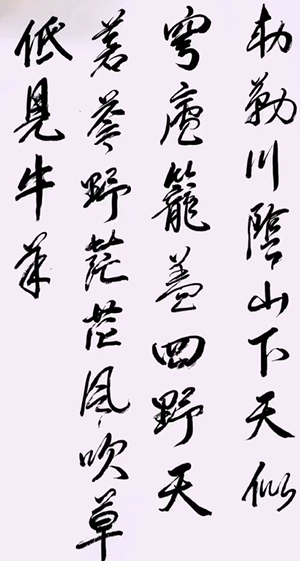 勅勒川陰山下天似
穹廬籠蓋四野天
蒼蒼野茫茫風吹草
低見牛羊